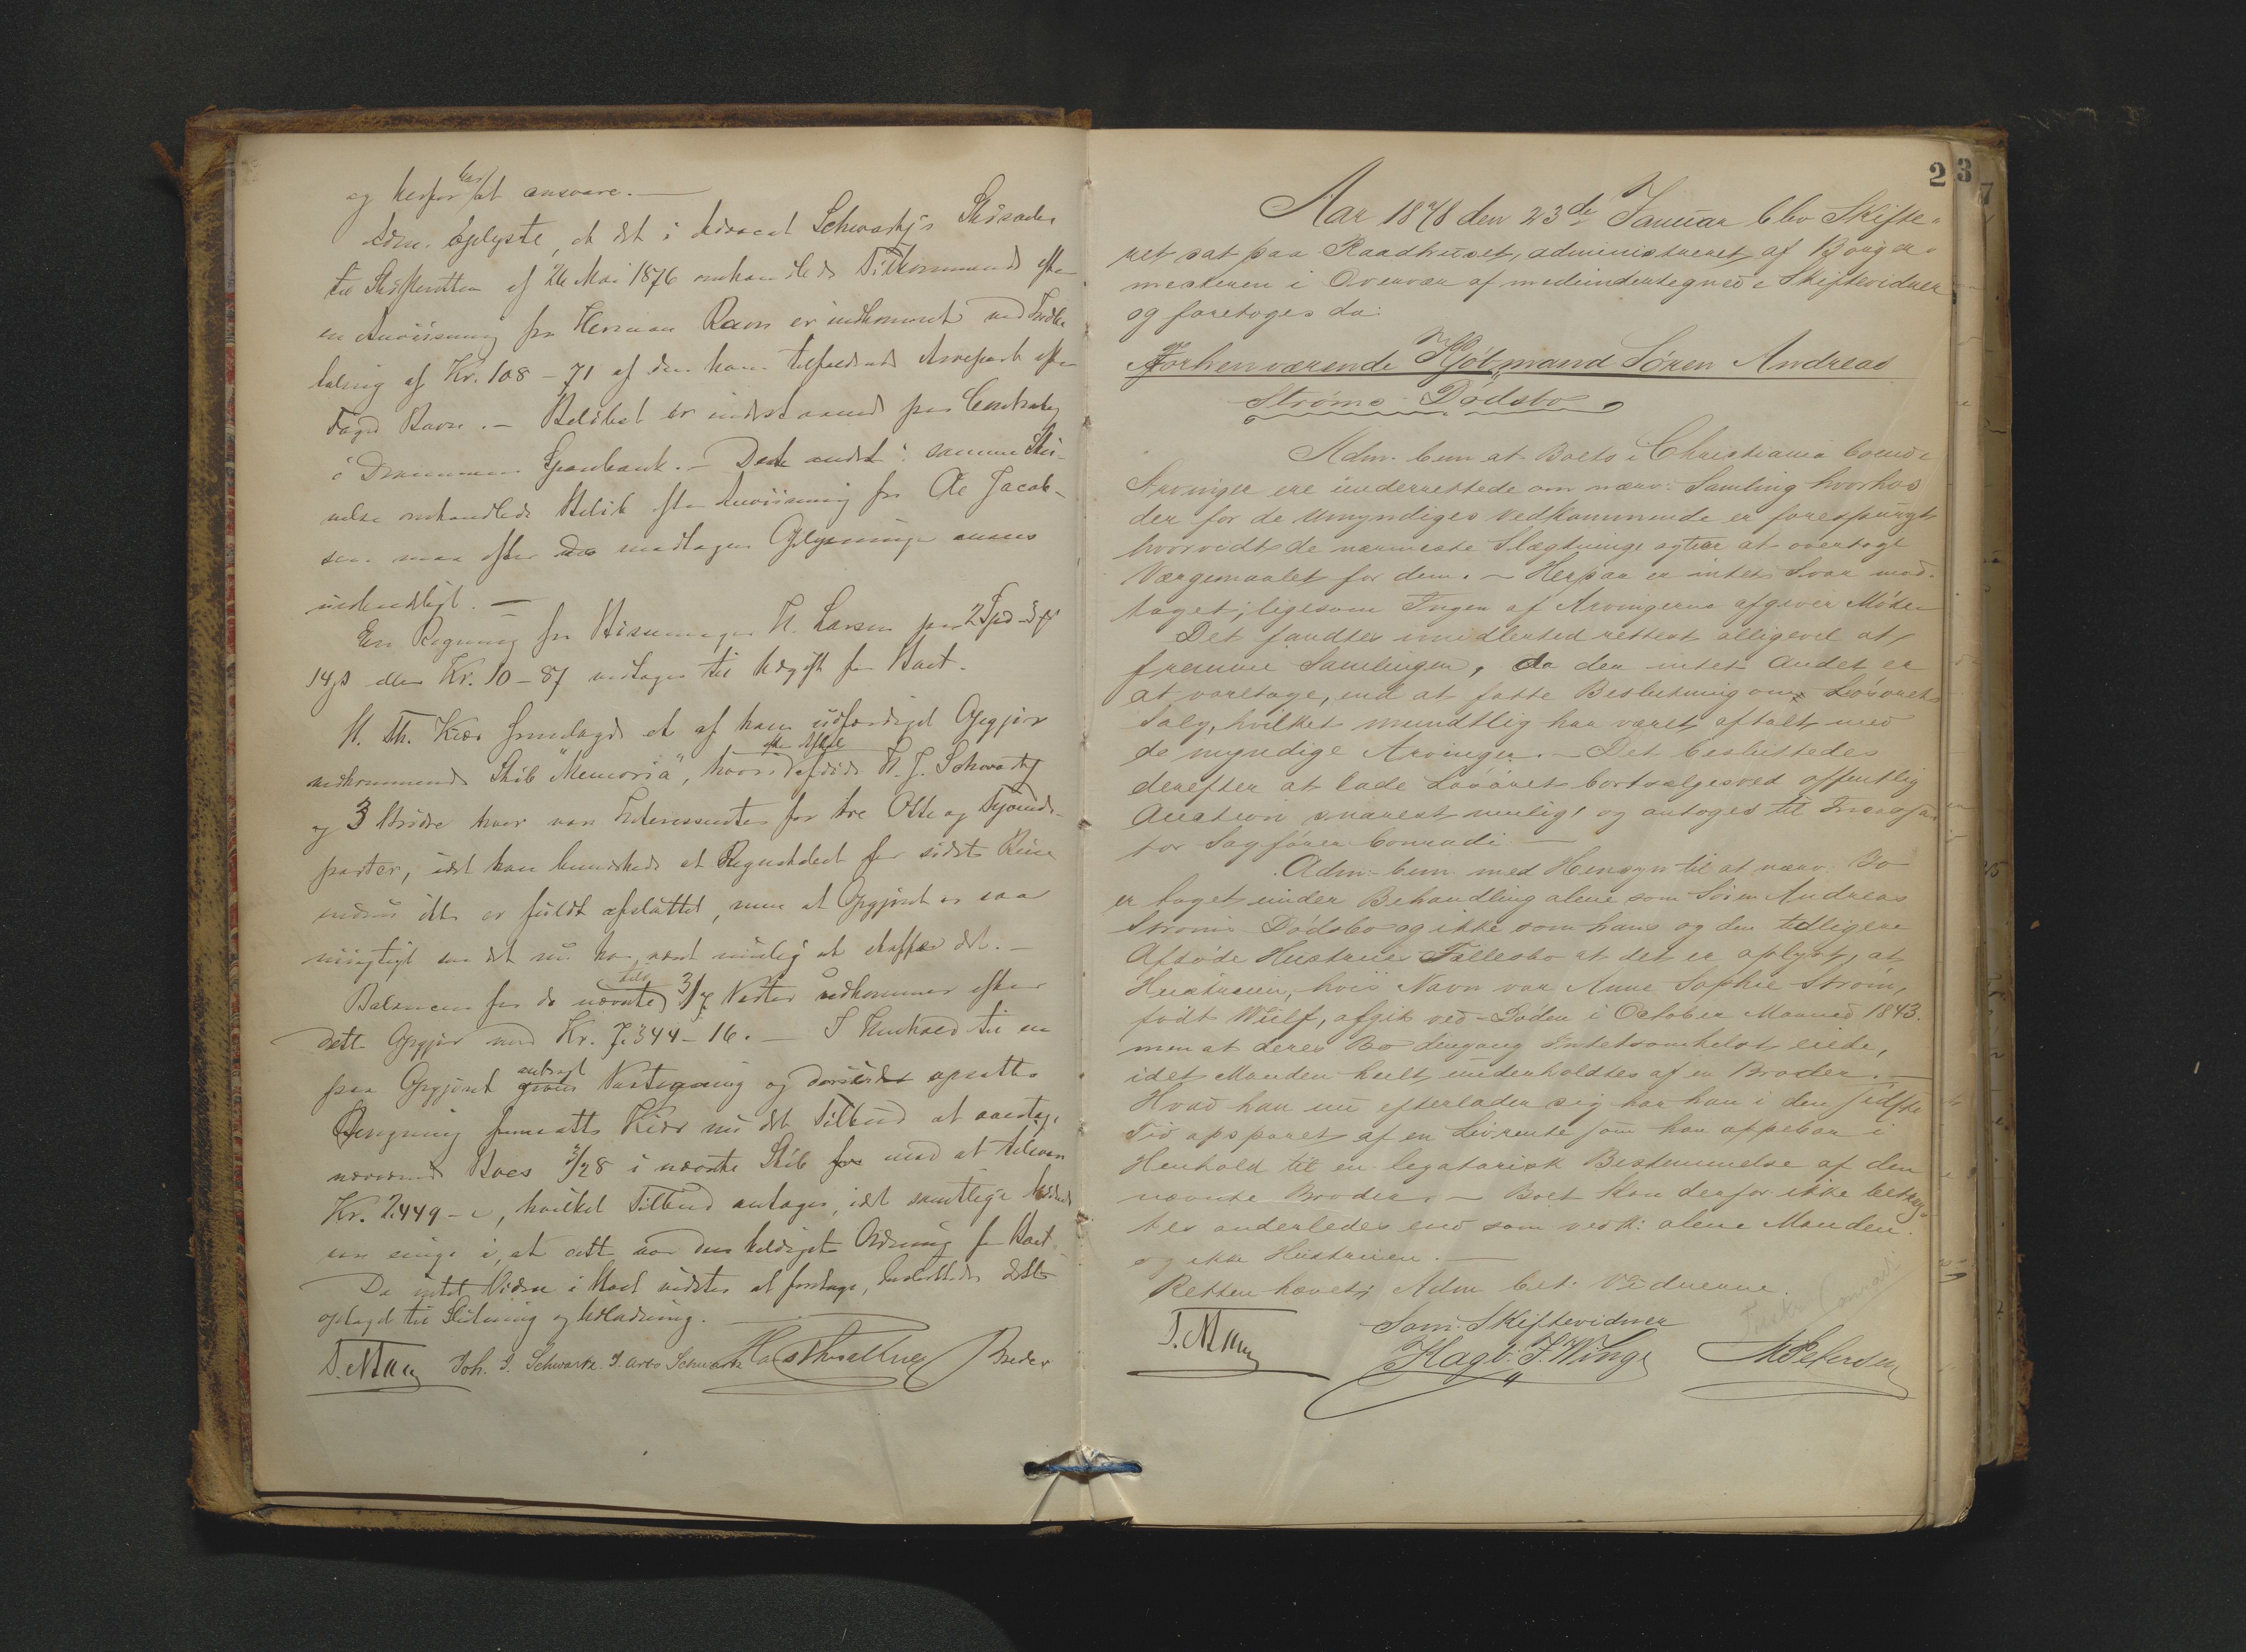 og herfor har at ansvare. —
Adm. oplyste, at det i Advocat Schwartz's Skrivelse
til Skifteretten af 26 Mai 1876 omhandlede Tilkommende efter
en Anviisning fra Herman Ravn er indkommet ved Indbe
taling af Kr. 108 – 71 af den ham tilfaldende Arvepart efter
Ravn. — Beløbet er indstaaende paa
i Drammens Sparebank. — Dette andet i samme Skri-
velse omhandlede Beløb efter Anviisning fra Ole Jacob-
sen maa efter de modtagne Oplysninger ansees
uerholdeligt. —
En Regning fra H. Larsen paa 2 Spd 3
14 ß eller Kr. 10 – 87 vedtages til Udgift for Boet.
H. Th. Kiær fremlagde et af ham udfærdiget Opgjør
vedkommende Skib "Memoria", hvori efter afdøde H. J. Schwartz
og 3 Brødre hver var Interessenter for tre Otte og Tyvende-
parter, idet han bemærkede at Regnskabet for sidste Reise
endnu ikke er fuldt afsluttet, men at Opgjøret er saa
nøiagtigt som det nu har været mulig at skaffe det. —
Balancen for de nævnte 3/7 Parter udkommer efter
dette Opgjør med Kr. 7.344 – 16. — I Henhold til en
paa Opgjøret antaget Værtegning og opsatte
Beregning fremsatte Kiær nu det Tilbud at overtage
nærværende Boes 3/28 i nævnte Skib for mod at tilsvare
Kr. 2.449 – , hvilket Tilbud antages, idet samtlige
var enige i, at dette var den heldigste Ordning for Boet.
Da intet Videre i Boet vidstes at foretage, besluttedes dette
optaget til Slutning og Udlodning.
Joh. J. Schwartz J. Arbo Schwartz Hans Th. Kiær Breder
2 3
Aar 1878 den 23de Januar blev Skifte-
ret sat paa Raadhuset, administreret af Borger-
mesteren i Overvær af medundertegnede Skiftevidner
og foretoges da:
Forhenværende Kjøbmand Sören Andreas
Strøms Dødsbo
Adm. bem at Boets i Christiania boende
Arvinger ere underrettede om nærv. Samling hvorhos
der for de Umyndiges Vedkommende er forespurgt
hvorvidt de nærmeste Slægtninge agter at overtage
Værgemaalet for dem. — Herpaa er intet Svar mod-
taget; ligesom Ingen af Arvingerne afgiver Møde —
Det fandtes imidlertid rettest alligevel at
fremme Samlingen, da der intet Andet er
at varetage, end at fatte Beslutning om Løsørets
Salg, hvilket mundtlig har været aftalt med
de myndige Arvinger. — Det besluttedes
derefter at lade Løsøret bortsælges ved offentlig
Auction snarest mulig, og antoges til Incassa-
tor Sagfører Conradi —
Adm. bem. med Hensyn til at nærv. Bo
er taget under Behandling alene som Sören Andreas
Strøms Dødsbo og ikke som hans og den tidligere
Afdøde Hustrues Fællesbo at det er oplyst, at
Hustruen, hvis Navn var Anne Sophie Strøm,
født Wulf, afgik ved Døden i October Maaned 1843.
men at deres Bo dengang Intetsomhelst eiede,
idet Manden heelt underholdtes af en Broder. —
Hvad han nu efterlader sig har han i den sidste
Tid opsparet af en Livrente som han oppebar i
Henhold til en legatarisk Bestemmelse af den
nævnte Broder. — Boet kan derfor ikke betrag-
tes anderledes end som vedk: alene Manden
og ikke Hustruen. —
Retten hævet; Adm bet. Vidnerne.
Som Skiftevidner
Hagb: F. Winge M Petersen